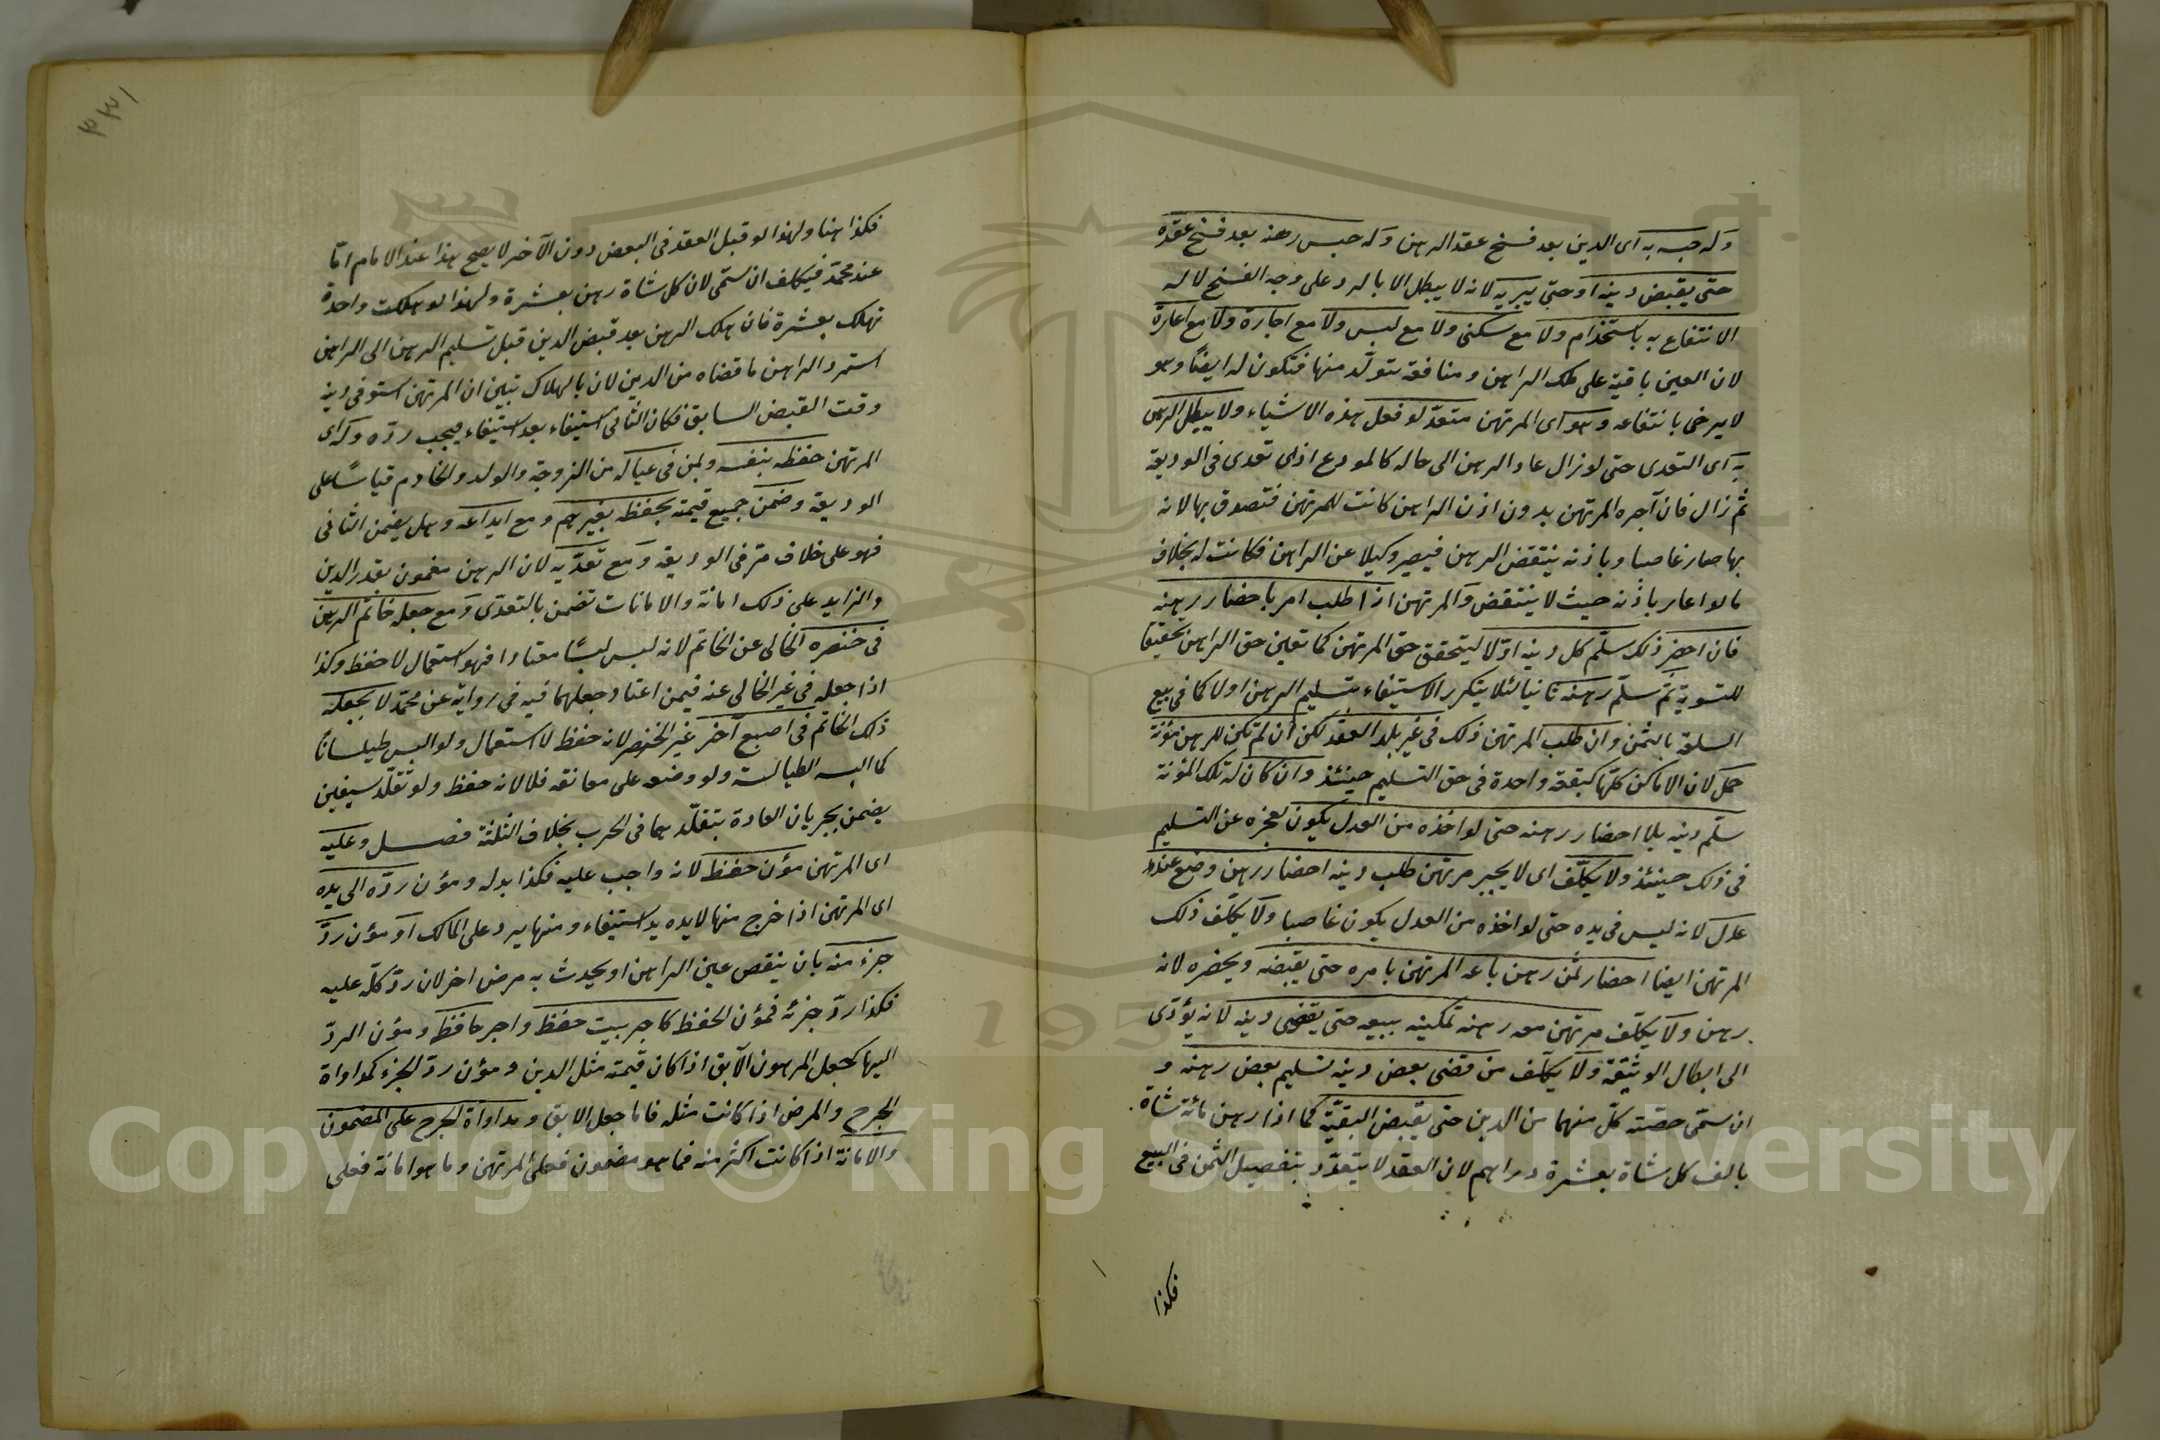 وله حبسه به اى الدين بعد فسخ عقد الرهن وله حبس رهنه بعد فسخ عقده
حتى يقبض دينه او حتى يبريه لانه لا يبطل الا بالرد على وجه الفسخ لا له
الانتفاع به باستخدام ولا مع سكنى ولا مع لبس ولا مع اجارة ولا مع اعارة
لان العين باقية على ملك الراهن ومنافعه تتولّد منها فتكون له ايضًا وهو
لا يرضى بانتفاعه وهو اى المرتهن متعدّ لو فعل هذه الاشياء ولا يبطل الرهن
به اى التعدى حتى لو زال عاد الرهن الى حاله كالمودع اذا تعدى فى الوديعة
ثم زال فان آجره المرتهن بدون اذن الراهن كانت للمرتهن فتصدق بها لانه
بها صار غاصبا وباذنه ينتقض الرهن فيصير وكيلا عن الراهن فكانت له بخلاف
ما لو اعار باذنه حيث لا ينتقض والمرتهن اذا طلب امر باحضار رهنه
فان احضر ذلك سلّم كل دينه اوّلا ليتحقق حق المرتهن كما تعين حق الراهن تحقيقا
للتسوية ثم سلّم رهنه ثانيا لئلا يتكرر الاستيفاء بتسليم الرهن اولا كما فى بيع
السلعة بالثمن وان طلب المرتهن ذلك فى غير بلد العقد لكن ان لم تكن للرهن مؤنة
حمل لان الاماكن كلّها كبقعة واحدة فى حق التسليم حينئذ وان كان له تلك المؤنة
سلّم دينه بلا احضار رهنه حتى لو اخذه من العدل يكون لعجزه عن التسليم
فى ذلك حينئذ ولا يكلّف اى لا يجبر مرتهن طلب دينه احضار رهن وضع عند
عدل لانه ليس فى يده حتى لو اخذه من العدل يكون غاصبا ولا يكلّف ذلك
المرتهن ايضا احضار ثمن رهن باعه المرتهن بامره حتى يقبضه ويحضره لانه
رهن ولا يكلّف مرتهن معه رهنه تمكينه ببيعه حتى يقضى دينه لانه يؤدّى
الى ابطال الوثيقة ولا يكلّف من قضى بعض دينه تسليم بعض رهنه و
ان سمّى حصّته كلّ منهما من الدين حتى يقبض البقيّة كما اذا رهن مائة شاة
بالف كل شاة بعشرة دراهم لان العقد لا يتعدّد بتفصيل الثمن فى البيع
فكذا
٣٣١
فكذا هنا ولهذا لو قبل العقد فى البعض دون الآخر لا يصح هذا عند الامام امّا
عند محمّد فيكلف ان سمّى لان كل شاة رهن بعشرة ولهذا لو هلكت واحدة
تهلك بعشرة فان هلك الرهن بعد قبض الدين قبل تسليم الرهن الى الراهن
استرد الراهن ما قضاه من الدين لان بالهلاك تبين ان المرتهن استوفى دينه
وقت القبض السابق فكان الثانى استيفاء بعد استيفاء فيجب ردّه وله اى
المرتهن حفظه بنفسه وبمن فى عياله من الزوجة والولد والخادم قياسًا على
الوديعة وضمن جميع قيمته بحفظه بغيرهم ومع ايداعه وهل يضمن الثانى
فهو على خلاف مرّ فى الوديعة ومع تعدّيه لان الرهن مضمون بقدر الدين
والزايد على ذلك امانة والامانات تضمن بالتعدّى ومع جعله خاتم الرهن
فى خنصره الخالى عن الخاتم لانه لبس لبسًا معتادا فهو استعمال لا حفظ وكذا
اذا جعله فى غير الخالى عنه فيمن اعتاد جعلهما فيه فى رواية عن محمّد لا بجعله
ذلك الخاتم فى اصبع آخر غير الخنصر لانه حفظ لا استعمال ولو البس طيلسانًا
كما البسه الطيالسة ولو وضعه على معانقه فلا لانه حفظ ولو تقلّد سيفين
يضمن بجريان العادة بتقلّدهما فى الحرب بخلاف الثلثة فصل وعليه
اى المرتهن مؤن حفظ لانه واجب عليه فكذا بدله ومؤن ردّه الى يده
اى المرتهن اذا خرج منها لا يده يد استيفاء ومنها يرد على المالك او مؤن ردّ
جزء منه بان ينقص عين الراهن او يحدث به مرض اخر لان ردّ كلّه عليه
فكذا ردّ جزئه فمؤن الحفظ كاجر بيت حفظ واجر حافظ ومؤن الردّ
اليها كجعل المرهون الآبق اذا كان قيمته مثل الدين ومؤن ردّ الجزء كمداواة
الجرح والمرض اذا كانت مثله فاما جعل الابق ومداواة الجرح على المضمون
والامانة اذا كانت اكثر منه فما هو مضمون فعلى المرتهن وما هو امانة فعلى
Copyright © King Saud University
195